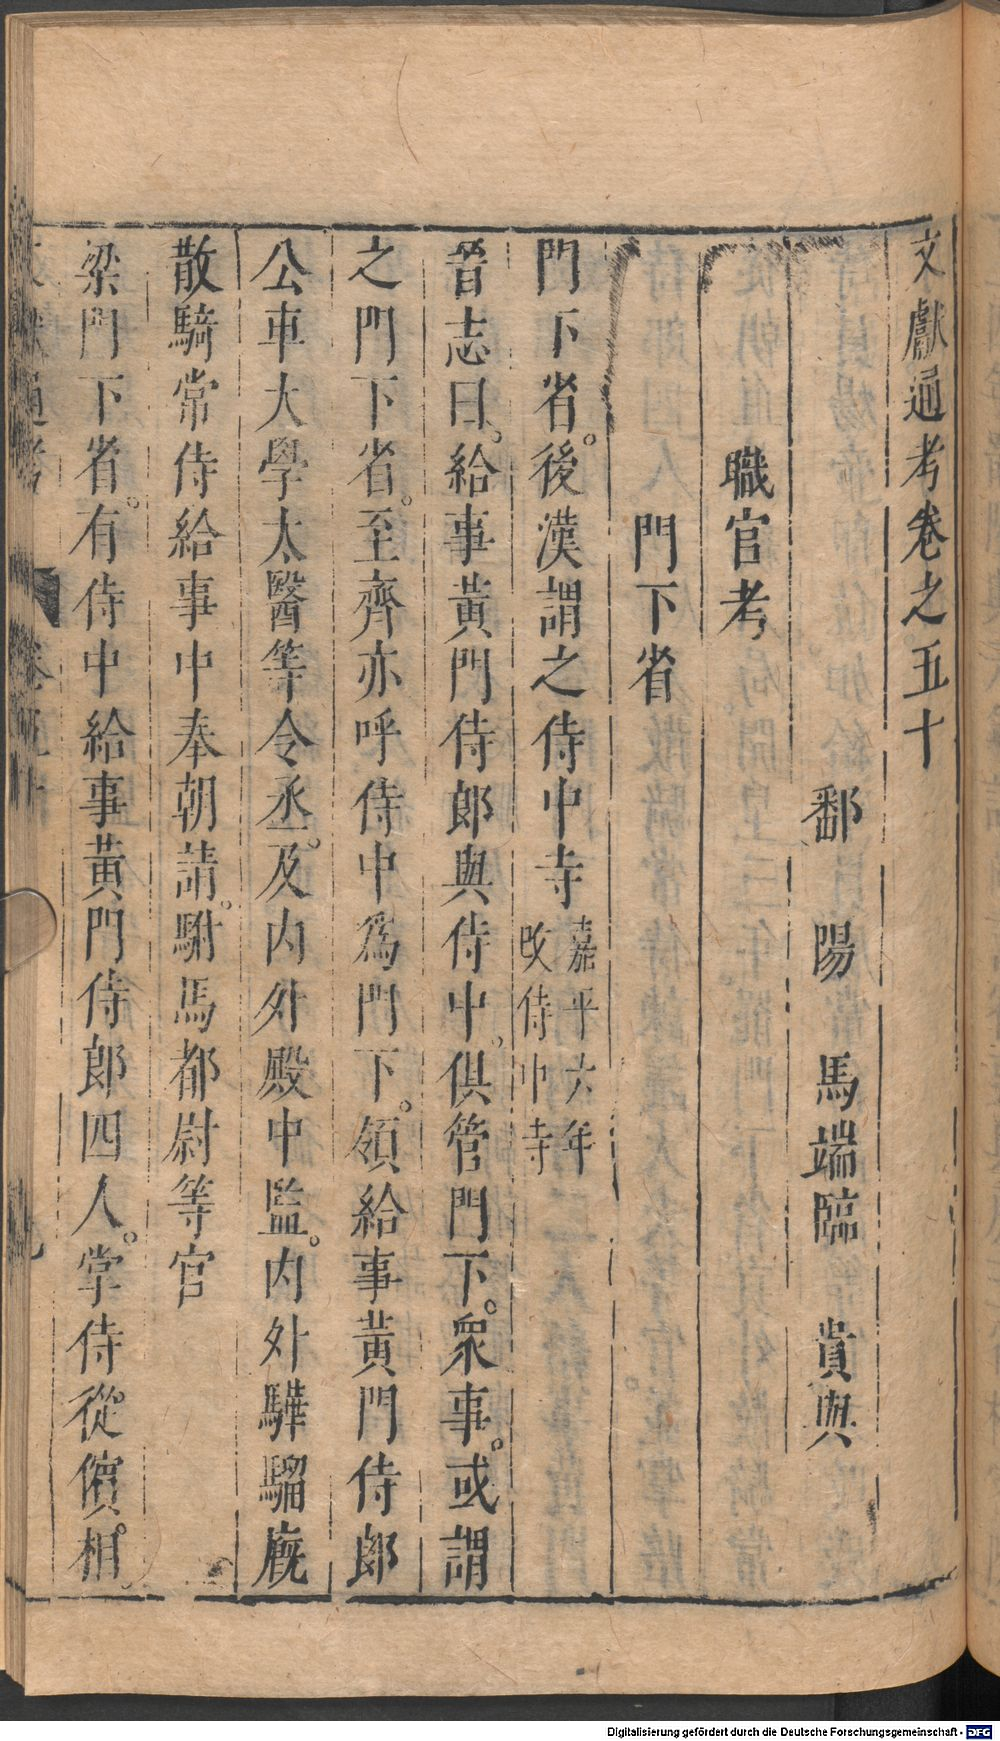 文獻通考卷之五十
鄱陽馬端臨貴與
職官考
門下省
門下省。後漢謂之侍中寺嘉平六年改侍中寺
晉志曰。給事黃門侍郎與侍中。俱管門下。衆事。或謂
之門下省。至齊亦呼侍中爲門下。領給事黃門侍郎
公車大學太醫等令丞。及內外殿中監。內外驊騮廐
散騎常侍給事中奉朝請。駙馬都尉等官
梁門下省。有侍中給事黃門侍郎四人。掌侍從儐相。
Digitalisierung gefördert durch die Deutsche Forschungsgemeinschaft - DFG